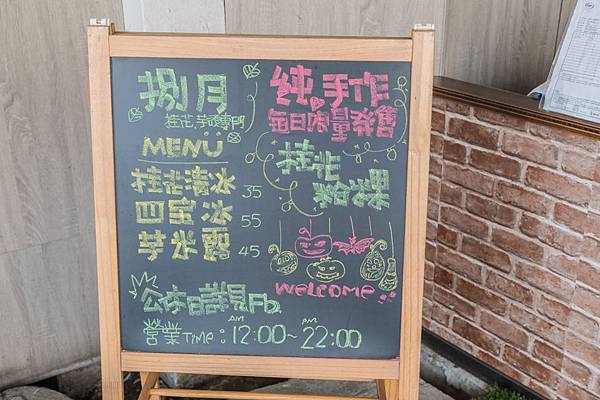 捌月
桂花.芋頭專門
MENU
桂花清冰 35
四宝冰 55
芋米露 45
純手作
每日限量発售
桂花
粉粿
welcome
公休日詳見Fb.
AM PM
營業Time:12:00~22:00